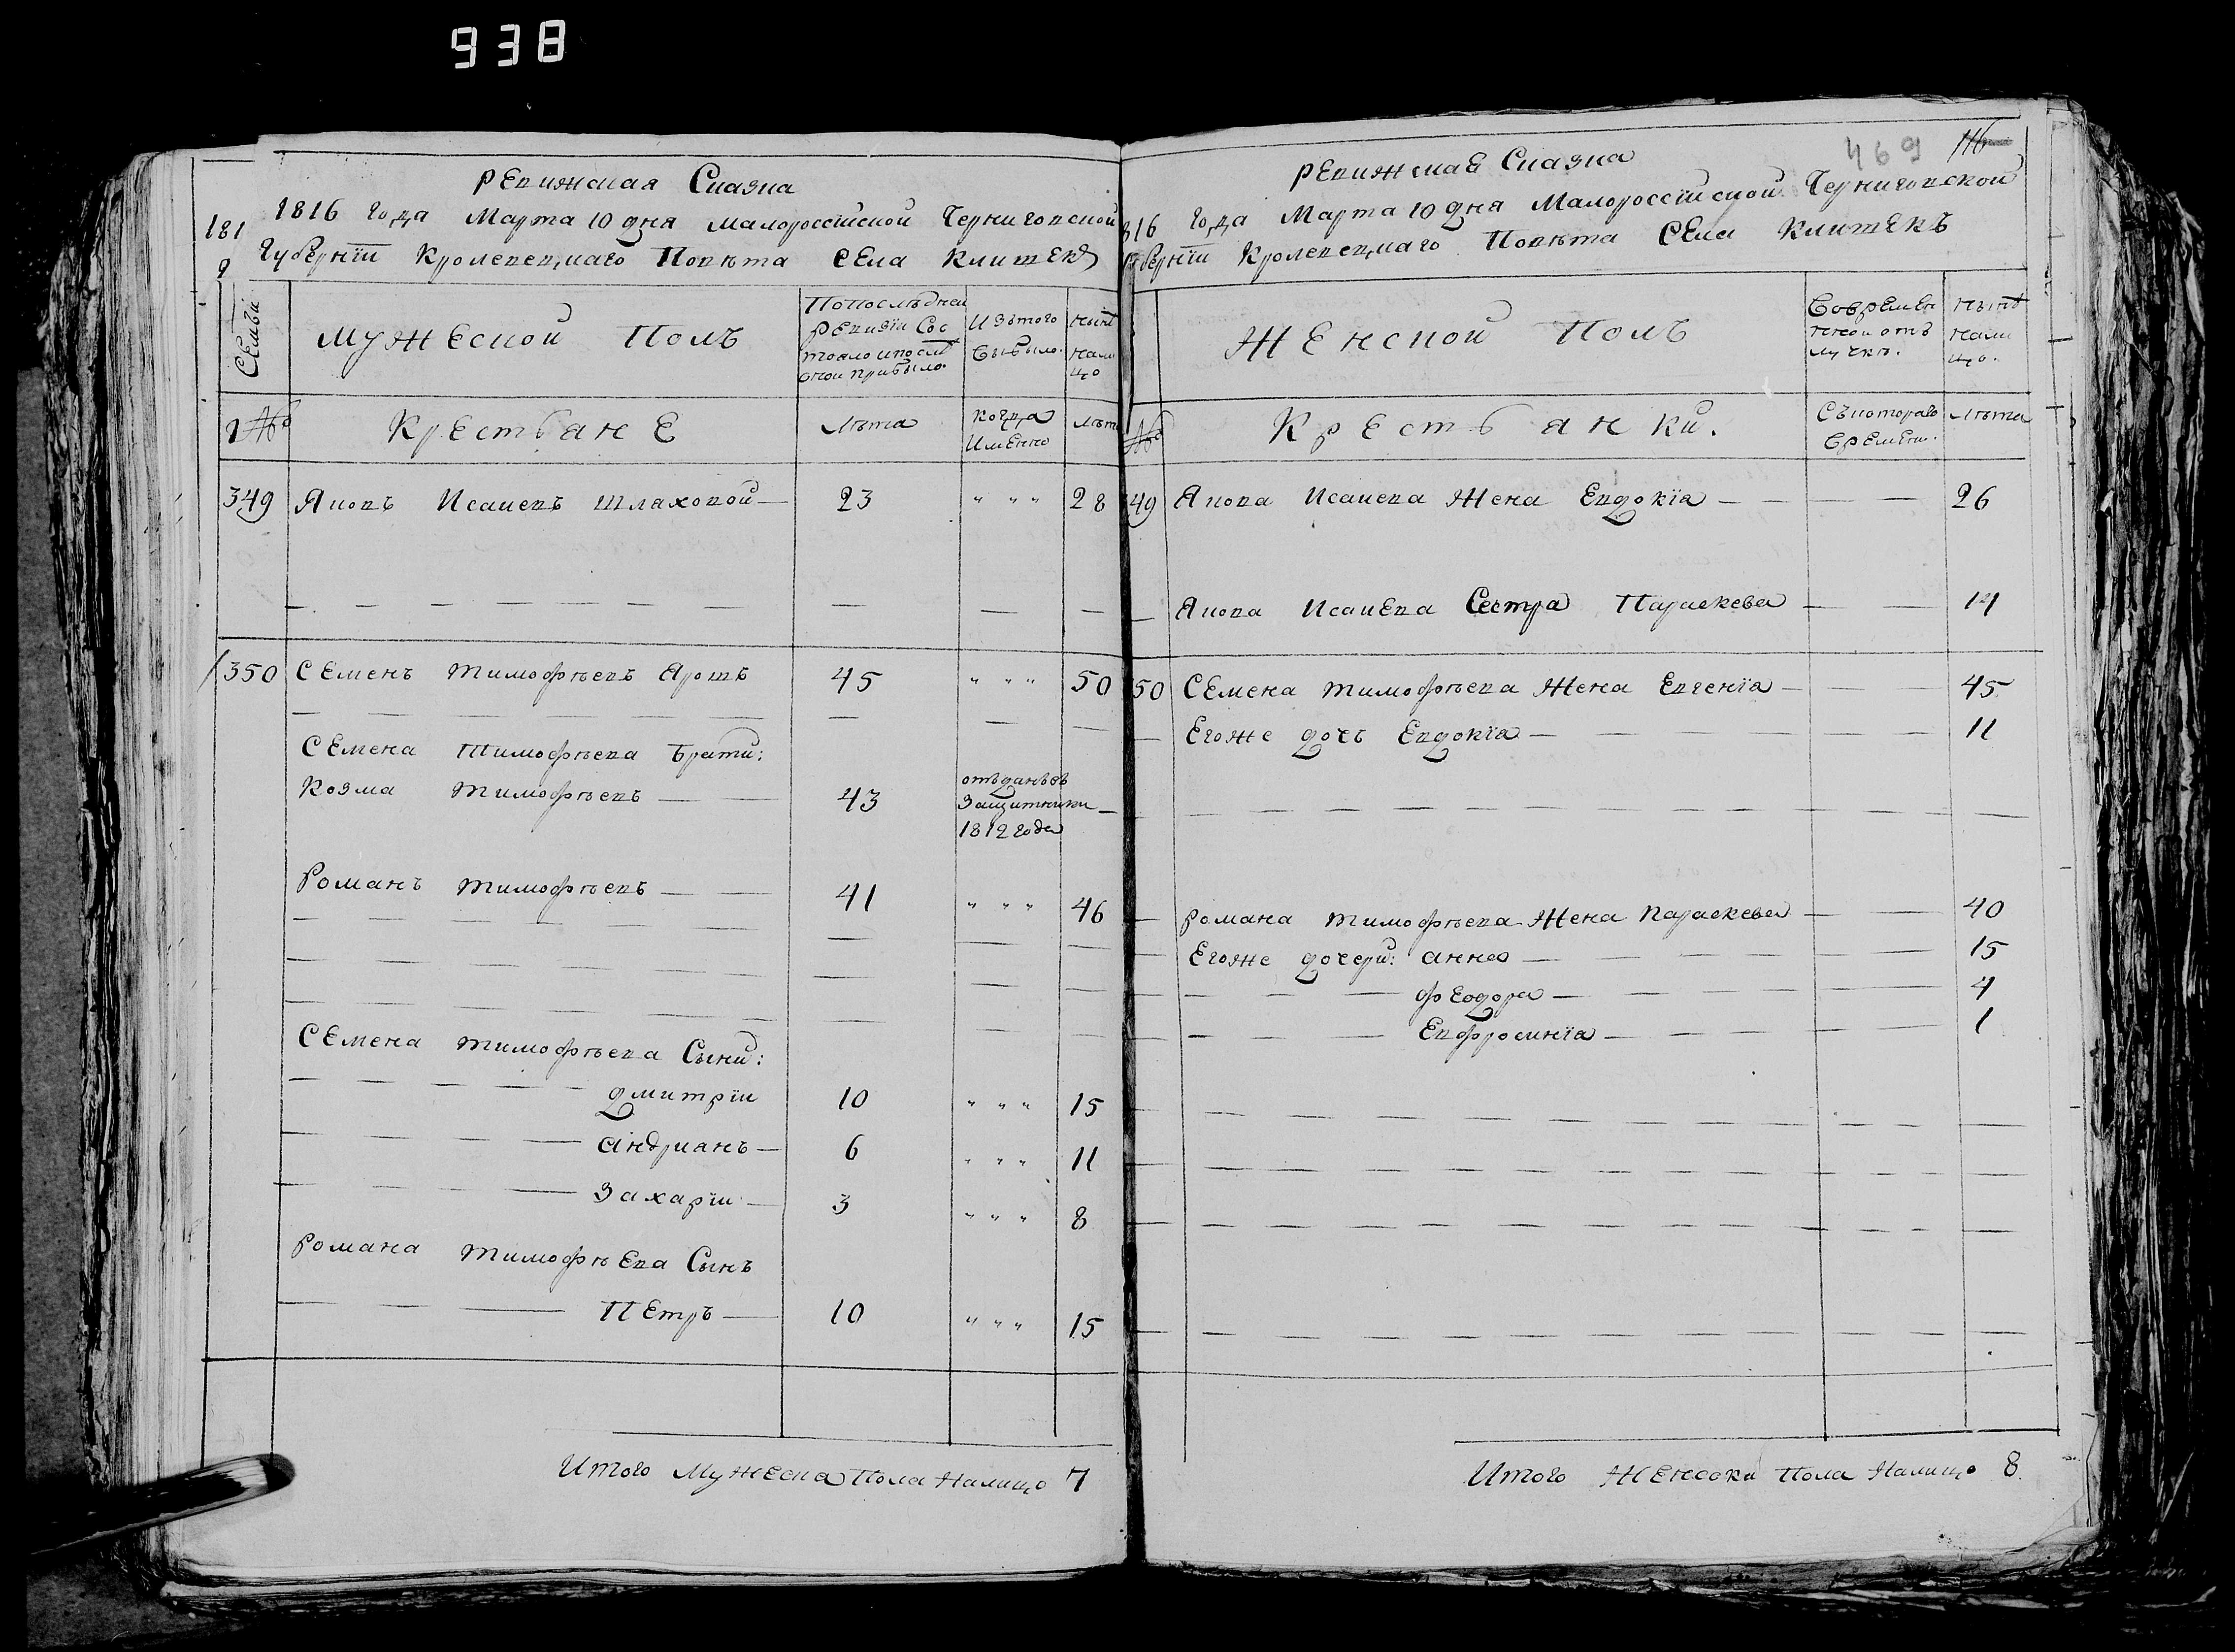 938
Ревижская Сказка
1816 года Марта 10 дня Малороссійской Черниговской
Губерніи Кролевецкаго Повѣта Села Клишекъ
181
Семьи
Мужеской Полъ
По последней
ревизіи Сос
тояло и после
оной прибыло.
Изътого
Выбыло.
Нынѣ
Нали
цо
№
Крестьяне
Лѣта
Когда
Именно
Лѣта
349 Яковъ Исаиевъ Шлаховой — 23 " " " 28
350 Семенъ Тимофѣевъ Ярошъ 45 " " " 50
Семена Тимофѣева Брати:
Козма Тимофѣевъ — — 43
отъданъ въ
Защитники
1812 года
Романъ Тимофѣевъ — — 41 " " " 46
Семена Тимофѣева Сыни:
Дмитріи 10 " " " 15
Андрианъ — 6 " " " 11
Захаріи — 3 " " " 8
Романа Тимофѣева Сынъ
Петръ — 10 " " " 15
Итого Мужеска Пола Налицо 7
469 116
Ревижская Сказка
816 года Марта 10 дня Малороссійской Черниговской
Губерніи Кролевецкаго Повѣта Села Клишекъ
Женской Полъ
Во времен
ной отъ
лучкѣ.
Нынѣ
Нали
цо.
№
Крестьянки.
Съкотораго
Времени.
Лѣта
49 Якова Исаиева Жена Евдокіа — — — 26
Якова Исаиева Сестра Параскева — — 14
50 Семена Тимофѣева Жена Евгеніа — — 45
Егоже дочь Евдокіа — — — 11
Романа Тимофѣева Жена Параскева — — 40
Егоже дочери: Анна — — — 15
Феодора — — — 4
Евфросиніа — — — 1
Итого Женска Пола Налицо 8.